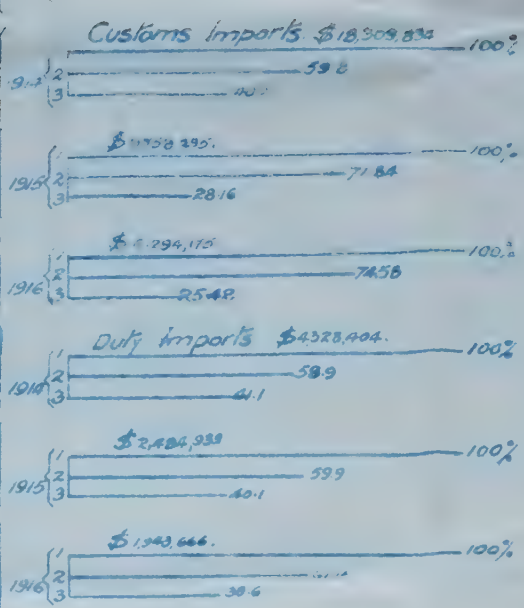 Customs Imports. $18,309,834 100%
1
1914 2 59.8
3
1 100%
1915 2 71.84
3 28.16
1 100%
1916 2 74.58
3 25.42
Duty Imports $4328,404.
1 100%
1914 2 58.9
3 41.1
$2,484,939
1 100%
1915 2 59.9
3 40.1
1 100%
1916 2
3 38.6